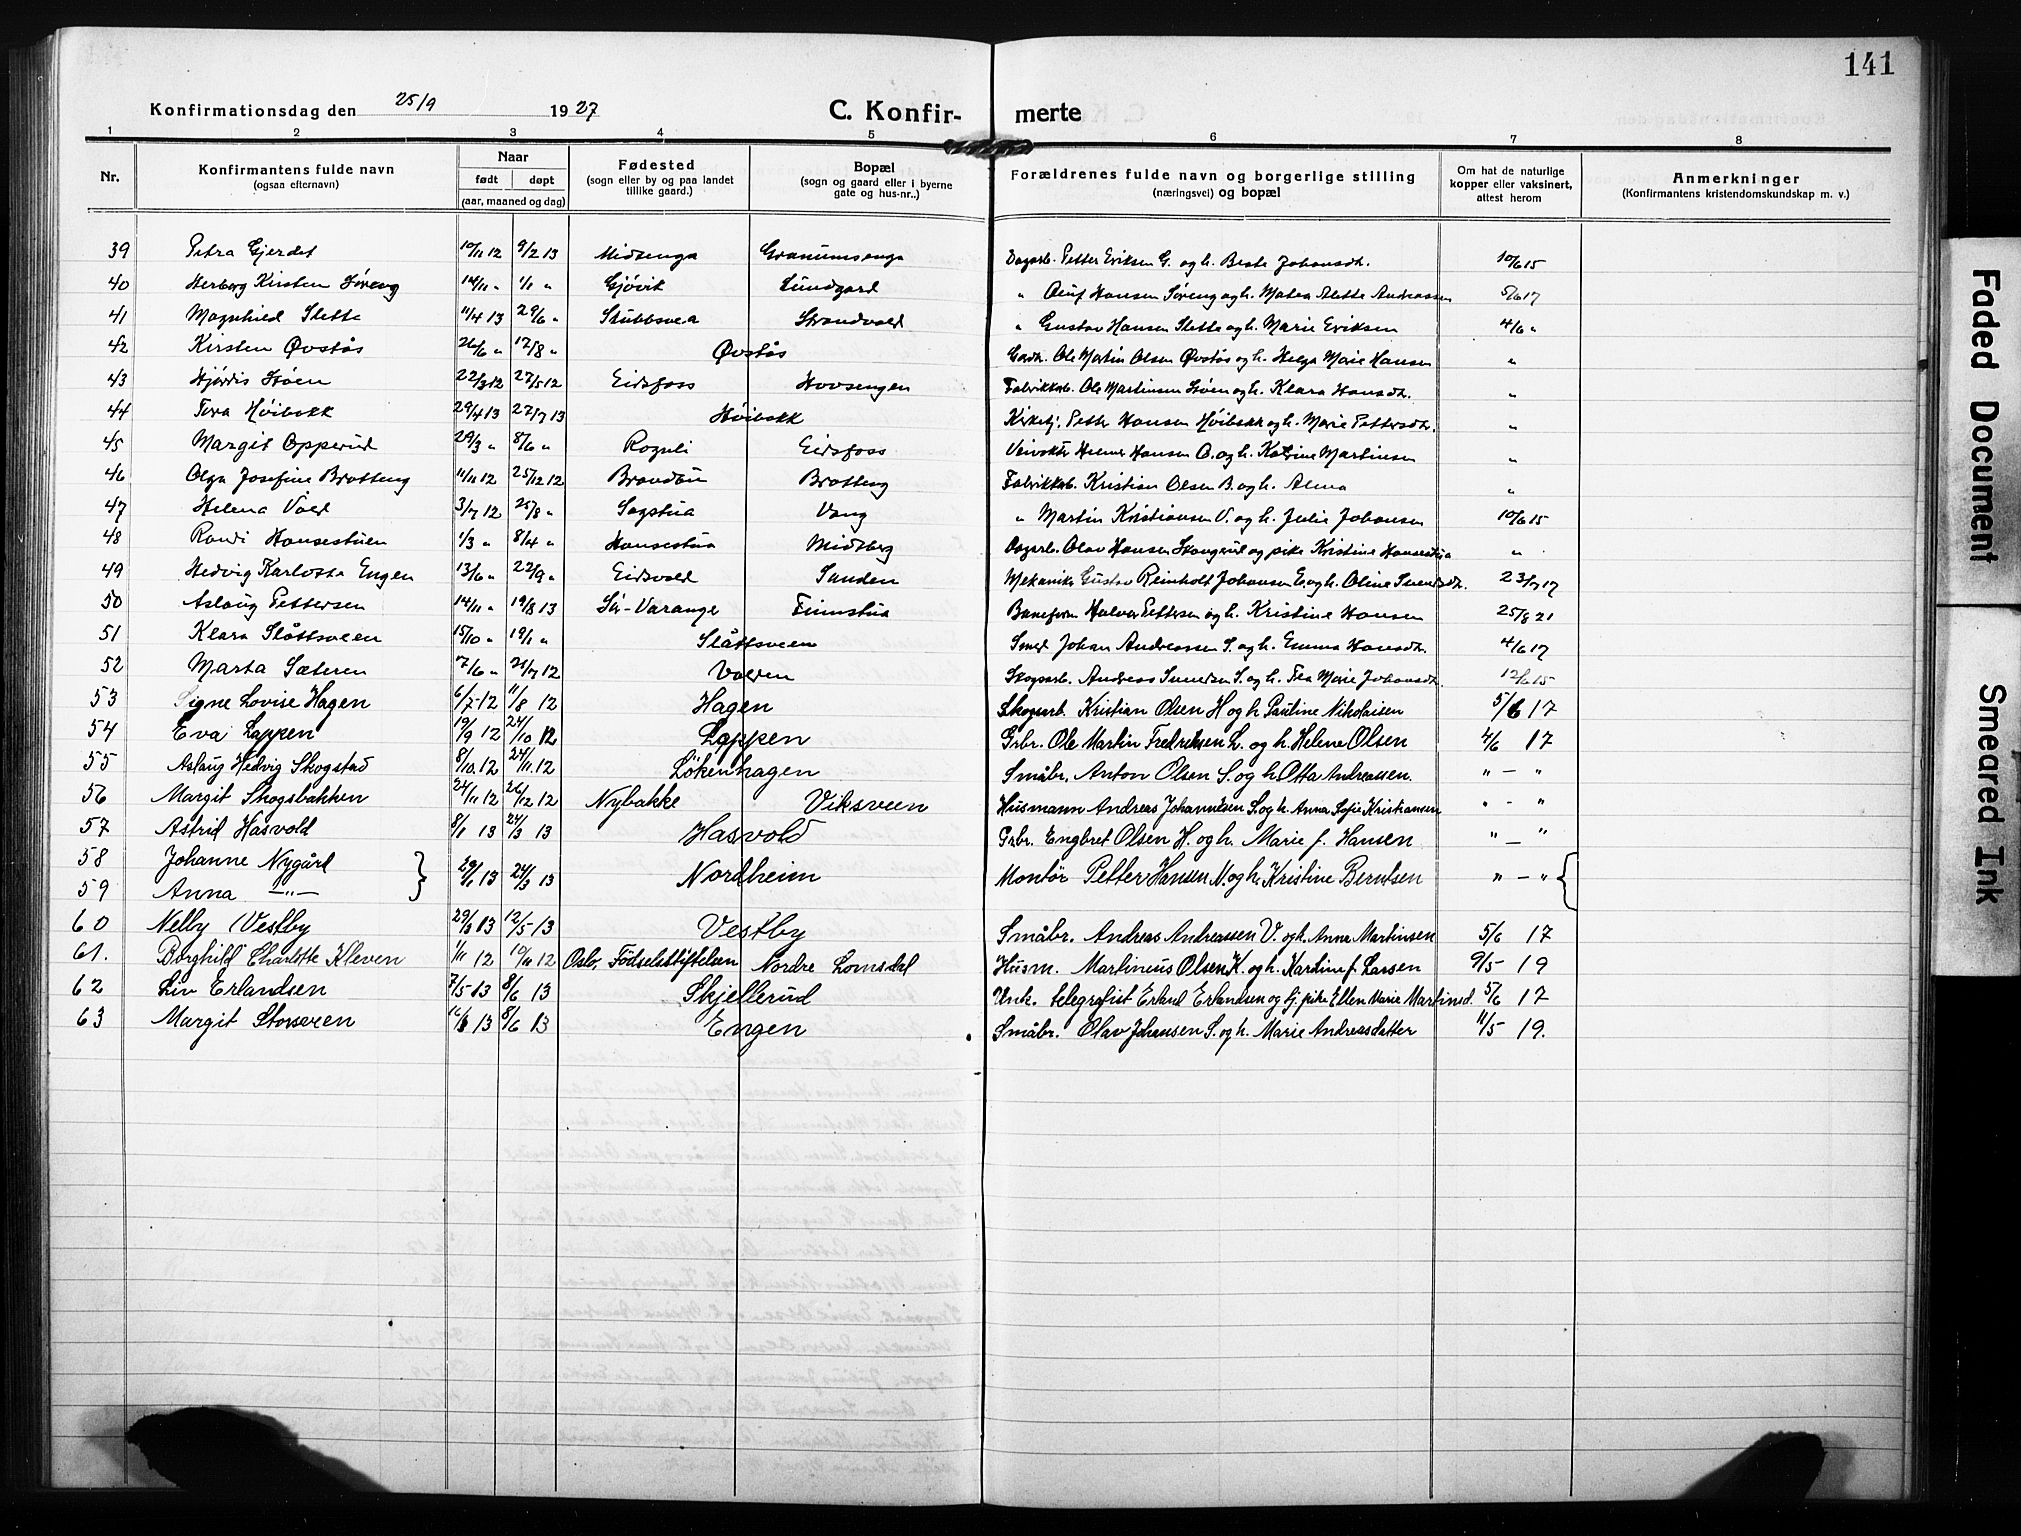 141
Konfirmationsdag den 25/9 1927 C. Konfirmerte
1 2 3 4 5 6 7 8
Nr. Konfirmantens fulde navn (ogsaa efternavn) Naar født døpt (aar, maaned og dag) Fødested (sogn eller by og paa landet tillike gaard.) Bopæl (sogn og gaard eller i byerne gate og hus-nr..) Forældrenes fulde navn og borgerlige stilling (næringsvei) og bopæl Om hat de naturlige kopper eller vaksinert, attest herom Anmerkninger (Konfirmantens kristendomskundskap m. v.)
39 Petra Gjerdet 10/11 12 9/2 13 Midtenga Granumsenga Dagarb. Petter Eriksen G. og h. Beate Johansdt. 10/6 15
40 Herborg Kirsten Søreng 14/11 " 1/1 " Gjøvik Lundgard " Oluf Hansen Søreng og h. Matea Alette Andreassen 5/6 17
41 Magnhild Slette 11/4 13 29/6 " Stubbsvea Strandvold " Gustav Hansen Slette og h. Marie Eriksen 4/6 "
42 Kirsten Øvstås 26/6 " 17/8 " Øvstås Gardb. Ole Martin Olsen Øvstås og h. Helga Marie Hansen "
43 Hjørdis Støen 22/3 12 27/5 12 Eidsfoss Hovsengen Fabrikkarb. Ole Martinsen Støen og h. Klara Hansdt. "
44 Tora Høibakk 29/4 13 27/7 13 Høibakk Kirketj. Petter Hansen Høibakk og h. Marie Pettersdtr. "
45 Margit Opperud 29/3 " 8/6 " Rognli Eidsfoss Veivokter Helmer Hansen O. og h. Katrine Martinsen "
46 Olga Josefine Bratteng 11/11 12 25/12 12 Brandbu Bratteng Fabrikkarb. Kristian Olsen B. og h. Alma "
47 Helena Vold 3/7 12 25/8 " Sagstua Vang " Martin Kristiansen V. og h. Julie Johansen 10/6 15
48 Randi Hansestuen 1/3 " 8/4 " Hansestua Midtberg Dagarb. Olav Hansen Skongrud og pike Kristine Hansestua "
49 Hedvig Karlotta Engen 13/6 " 22/9 " Eidsvold Sanden Mekaniker Gustav Reinholt Johansen E. og h. Oline Svendsdt. 23/7 17
50 Aslaug Pettersen 14/11 " 19/8 13 Sør-Varanger Finnstua Baneform. Halvor Pettersen og h. Kristine Hansen 25/8 21
51 Klara Slåttsveen 15/10 " 19/1 " Slåttsveen Smed Johan Andreassen S. og h. Emma Hansdt. 4/6 17
52 Marta Sæteren 7/6 " 21/7 12 Volden Skogsarb. Andreas Svendsen S. og h. Tea Marie Johansdt. 12/6 15
53 Signe Lovise Hagen 6/7-12 11/8 12 Hagen Skogsarb. Kristian Olsen H og h Pauline Nikolaisen 5/6 17
54 Eva Lappen 19/9 12 24/10 12 Lappen Grbr. Ole Martin Fredriksen L. og h. Helene Olsen 4/6 17
55 Aslaug Hedvig Skogstad 8/10. 12 24/11. 12 Lökenhagen Småbr. Anton Olsen S. og h. Otta Andreassen. " — "
56 Margit Skogsbakken 24/11 12 26/12 12 Nybakke Viksveen Husmann Andreas Johannesen S. og h. Anna Sofie Kristiansen " - "
57 Astrid Hasvold 8/1 13 24/3 13 Hasvold Grbr. Engbret Olsen H. og h. Marie f. Hansen " — "
58 Johanne Nygård } 29/1 13 24/3 13 Nordheim Montör Petter Hansen N. og h. Kristine Berntsen " — " {
59 Anna —"—
60 Nelly Vestby 29/3 13 12/5-13 Vestby Småbr. Andreas Andreassen V. og h. Anna Martinsen 5/6 17
61. Borghild Charlotte Kleven 1/11 12 10/11 12 Oslo, Födselsstiftelsen Nordre Lomsdal Husm. Martineus Olsen K. og h. Kardine f. Larsen 9/5-19
62 Liv Erlandsen 7/5 13 8/6 13 Skjellerud Unk. telegrafist Erland Erlandsen og tj. pike Ellen Marie Martinsd. 5/6 17
63 Margit Storsveen 13 8/6 13 Engen Småbr. Olav Johansen S. og h. Marie Andreasdatter 11/5 19.
Faded Document
Smeared Ink